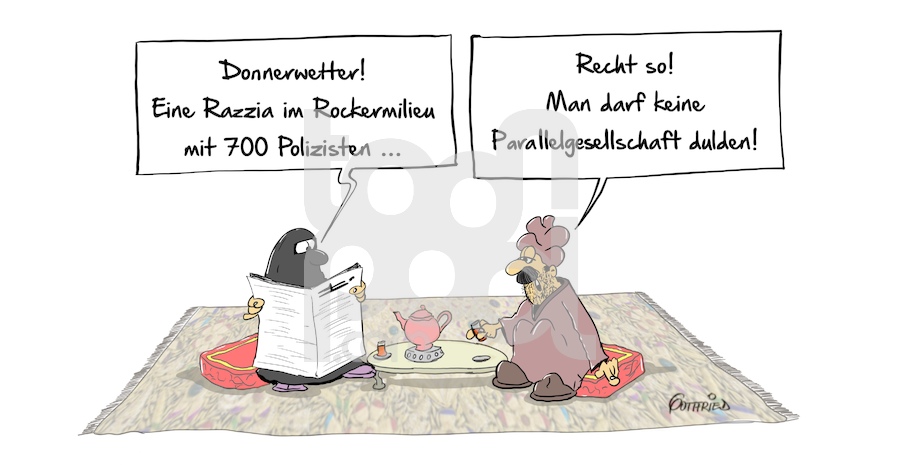 Donnerwetter!
Eine Razzia im Rockermilieu
mit 700 Polizisten ...
Recht so!
Man darf keine
Parallelgesellschaft dulden!
GOTTFRIED